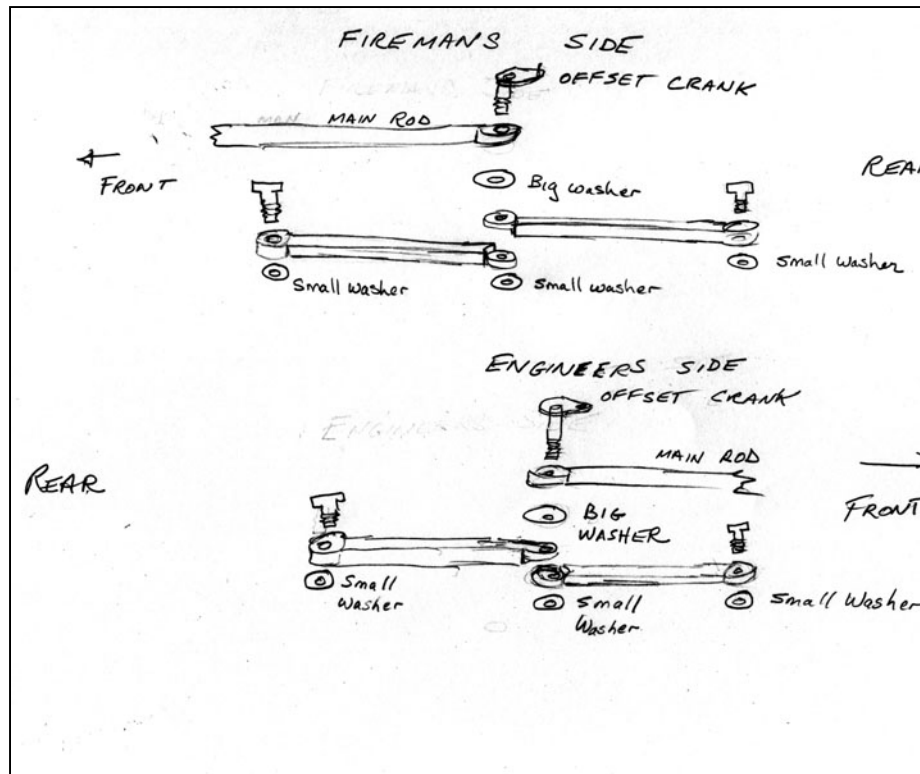 FIREMANS SIDE
OFFSET CRANK
MAIN ROD
FRONT
Big washer
REAR
Small washer
Small washer
Small washer
ENGINEERS SIDE
OFFSET CRANK
ENGINEERS SIDE
MAIN ROD
REAR
BIG
WASHER
FRONT
Small
Washer
Small
Washer
Small Washer